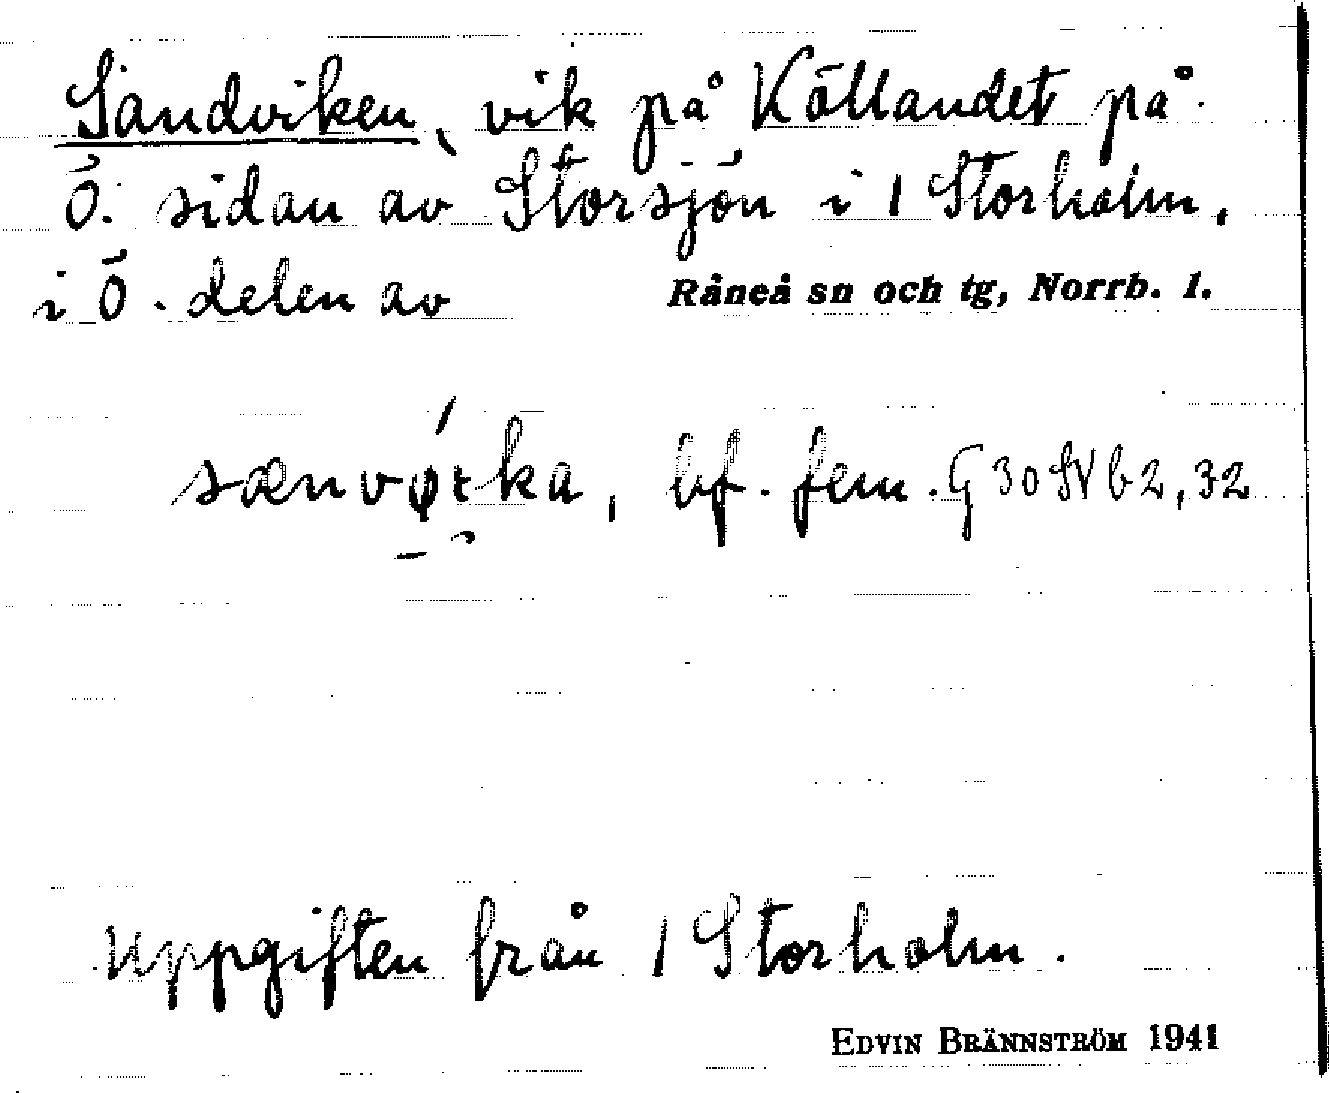 Sandviken, vik på Källandet på
Ö. sidan av Storsjön i 1 Storholm,
i Ö. delen av Råneå sn och tg, Norrb. l.
bf. fem. G 30 SV b 2, 32
Uppgiften från 1 Storholm.
EDVIN BRÄNNSTRÖM 1941